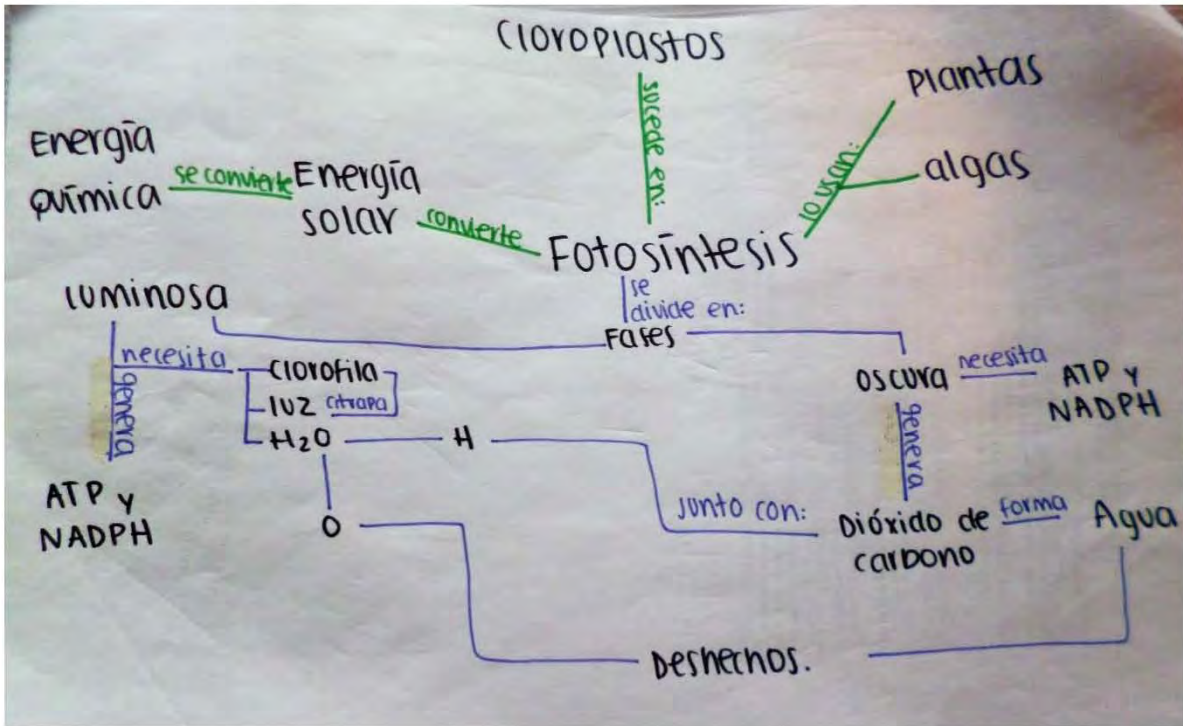 Cloroplastos
sucede en:
Plantas
lo usan:
algas
Energía
química
se convierte
Energía
solar
convierte
Fotosíntesis
se
divide en:
Fases
luminosa
necesita
genera
Clorofila
luz
H₂O
H
O
ATP y
NADPH
oscura
necesita
ATP y
NADPH
genera
Junto con:
Dióxido de
carbono
forma
Agua
Deshechos.